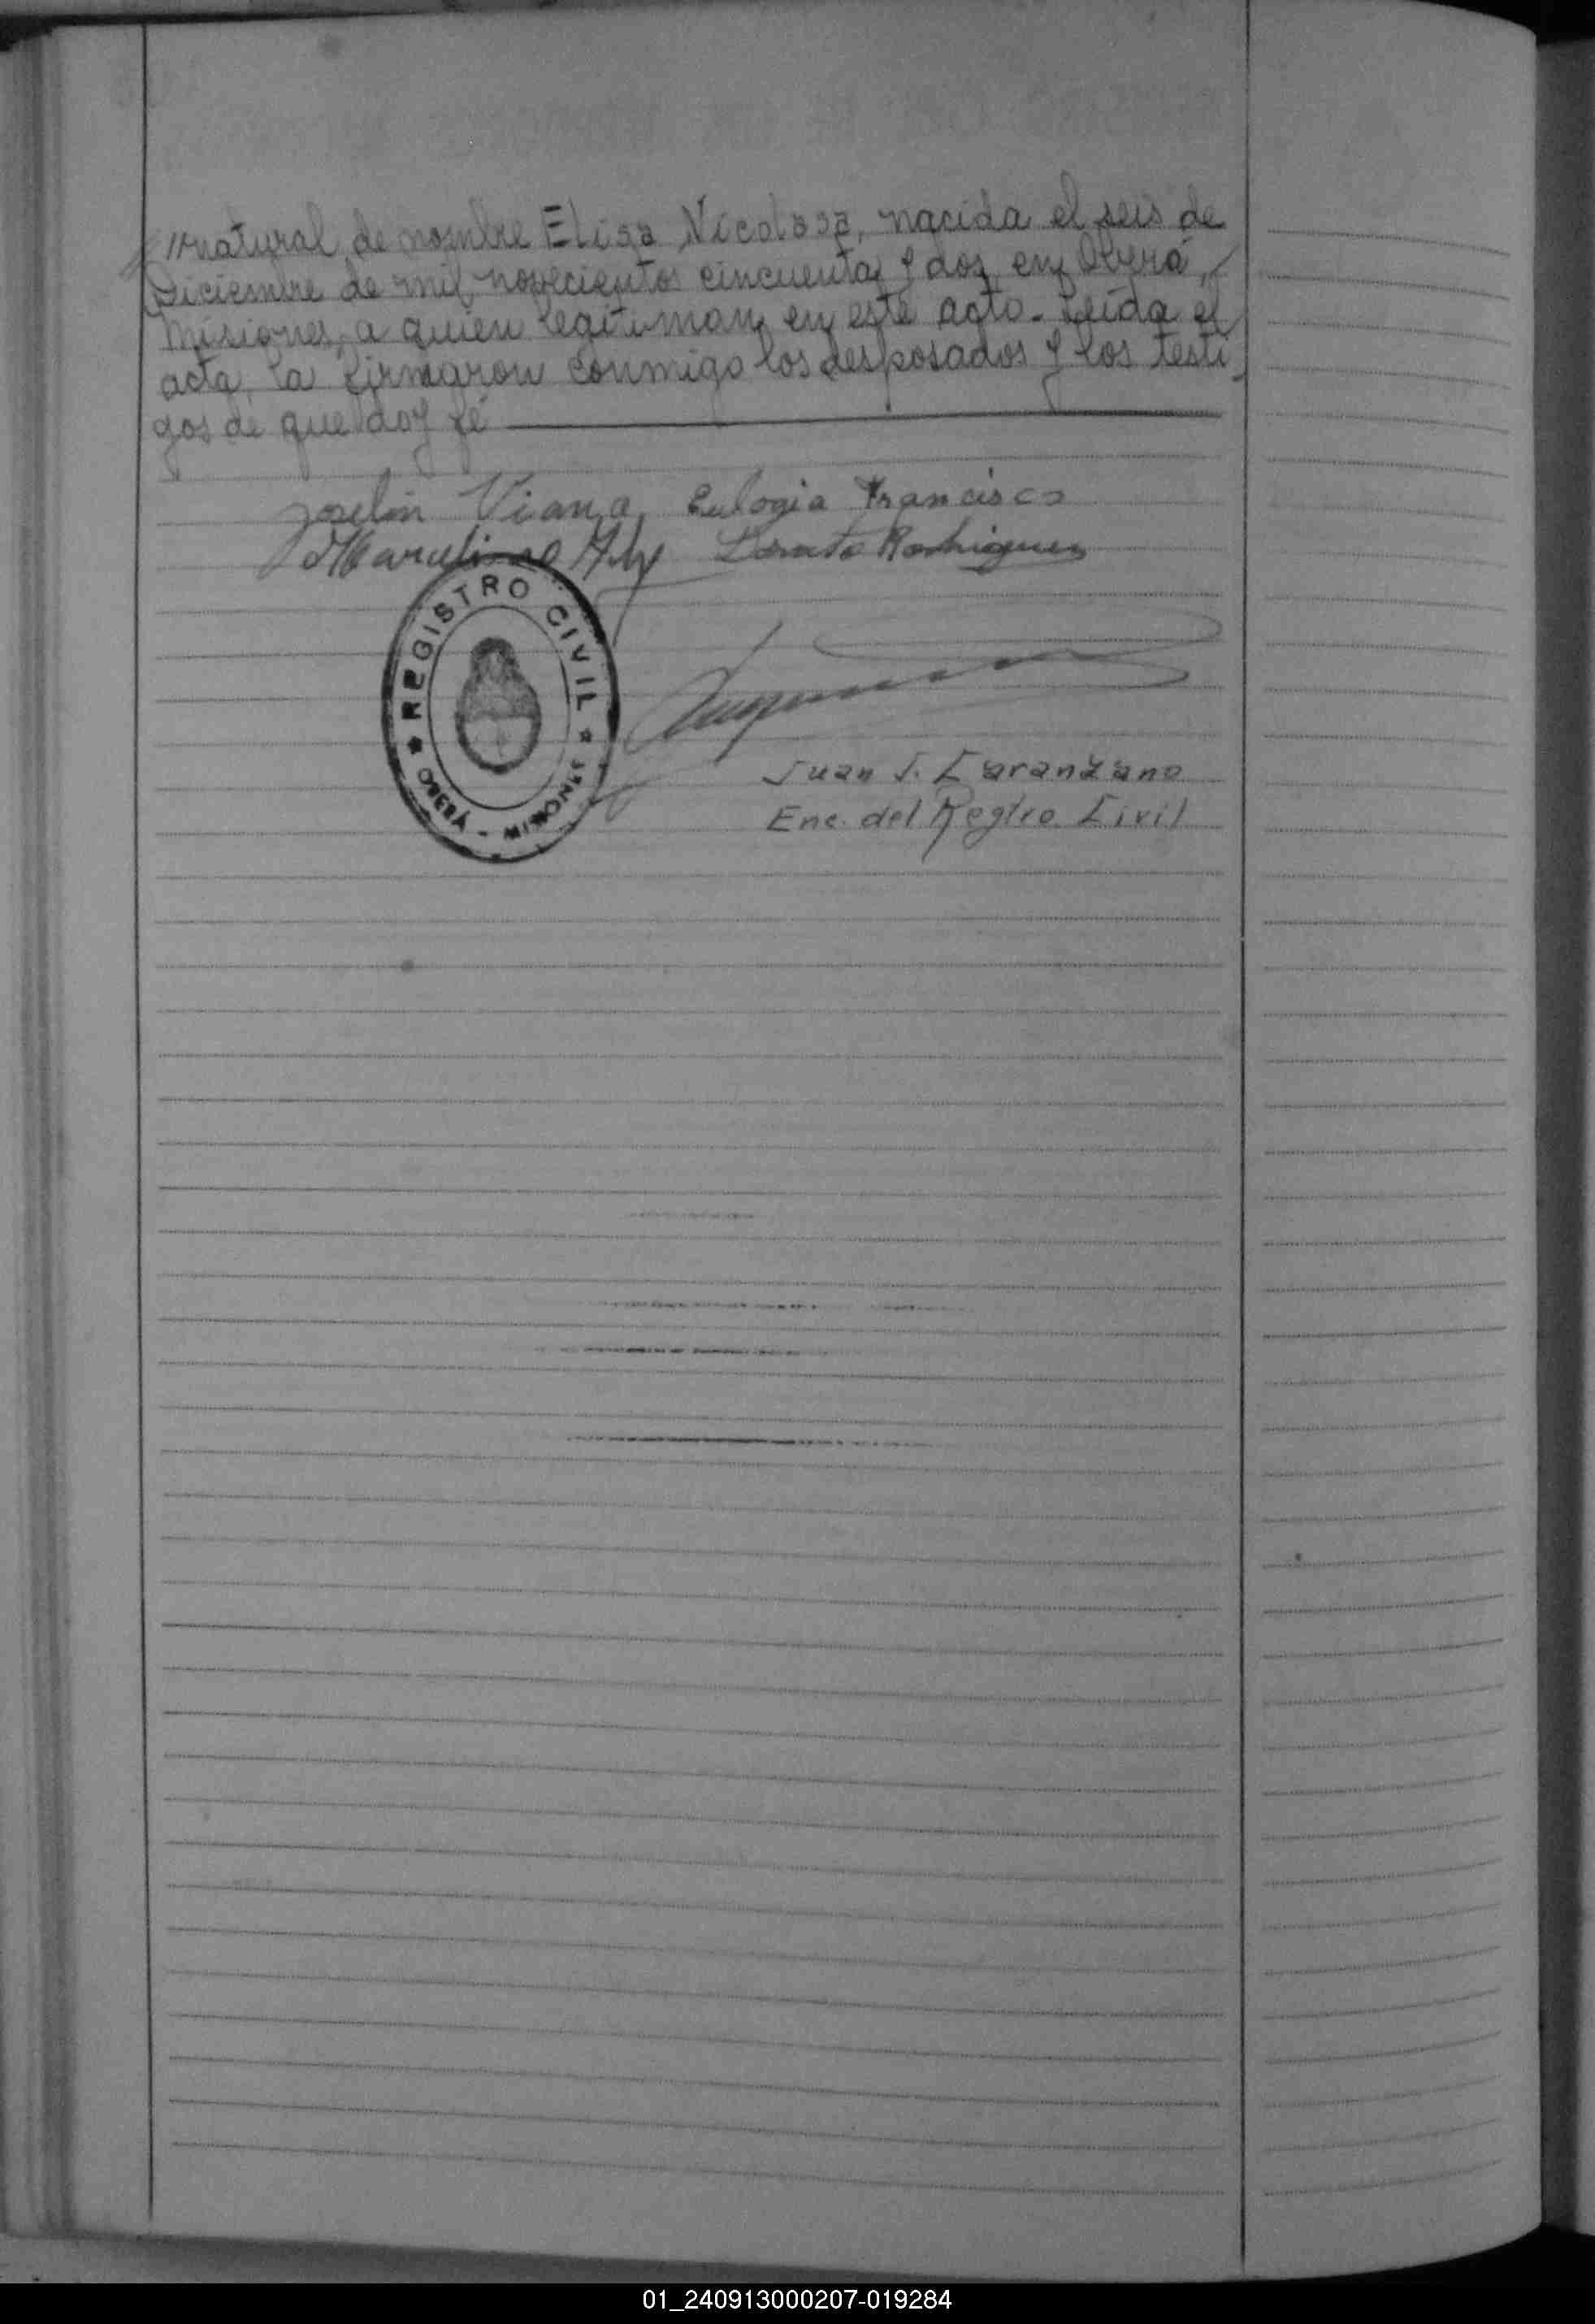 //natural, de nombre Elisa Nicolasa, nacida el seis de
Diciembre de mil novecientos cincuenta y dos en Oberá,
Misiones, a quien legitiman en este acto. Leida el
acta, la firmaron conmigo los desposados y los testi-
gos de que doy fé
Joselin Viana Eulogia Francisco
Marcelino Donato Rodriguez
REGISTRO CIVIL
OBERÁ - MISIONES
Juan J. Caranzano
Enc. del Regtro. Civil
01_240913000207-019284